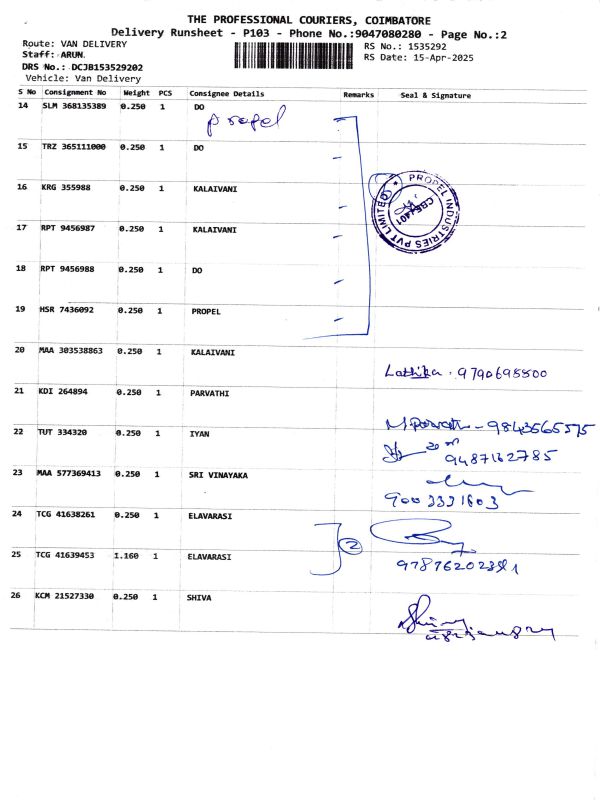 THE PROFESSIONAL COURIERS, COIMBATORE
Delivery Runsheet - P103 - Phone No.:9047080280 - Page No.:2
Route: VAN DELIVERY
RS No.: 1535292
Staff: ARUN.
RS Date: 15-Apr-2025
DRS No.: DCJB153529202
Vehicle: Van Delivery
S No Consignment No Weight PCS Consignee Details Remarks Seal & Signature
14 SLM 368135389 0.250 1 DO
propel
15 TRZ 365111000 0.250 1 DO
16 KRG 355988 0.250 1 KALAIVANI
PROPEL INDUSTRIES PVT LIMITED
17 RPT 9456987 0.250 1 KALAIVANI
18 RPT 9456988 0.250 1 DO
19 HSR 7436092 0.250 1 PROPEL
20 MAA 303538863 0.250 1 KALAIVANI
21 KDI 264894 0.250 1 PARVATHI
22 TUT 334320 0.250 1 IYAN
9487162785
23 MAA 577369413 0.250 1 SRI VINAYAKA
9003331603
24 TCG 41638261 0.250 1 ELAVARASI
2
25 TCG 41639453 1.160 1 ELAVARASI
26 KCM 21527330 0.250 1 SHIVA